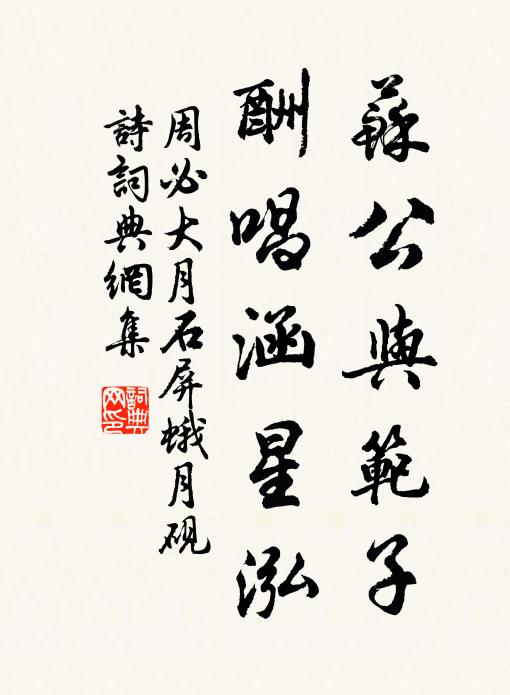 蘇公與範子
酬唱涵星泓
周必大月石屏蛾月硯
詩詞典網集
詞典网印